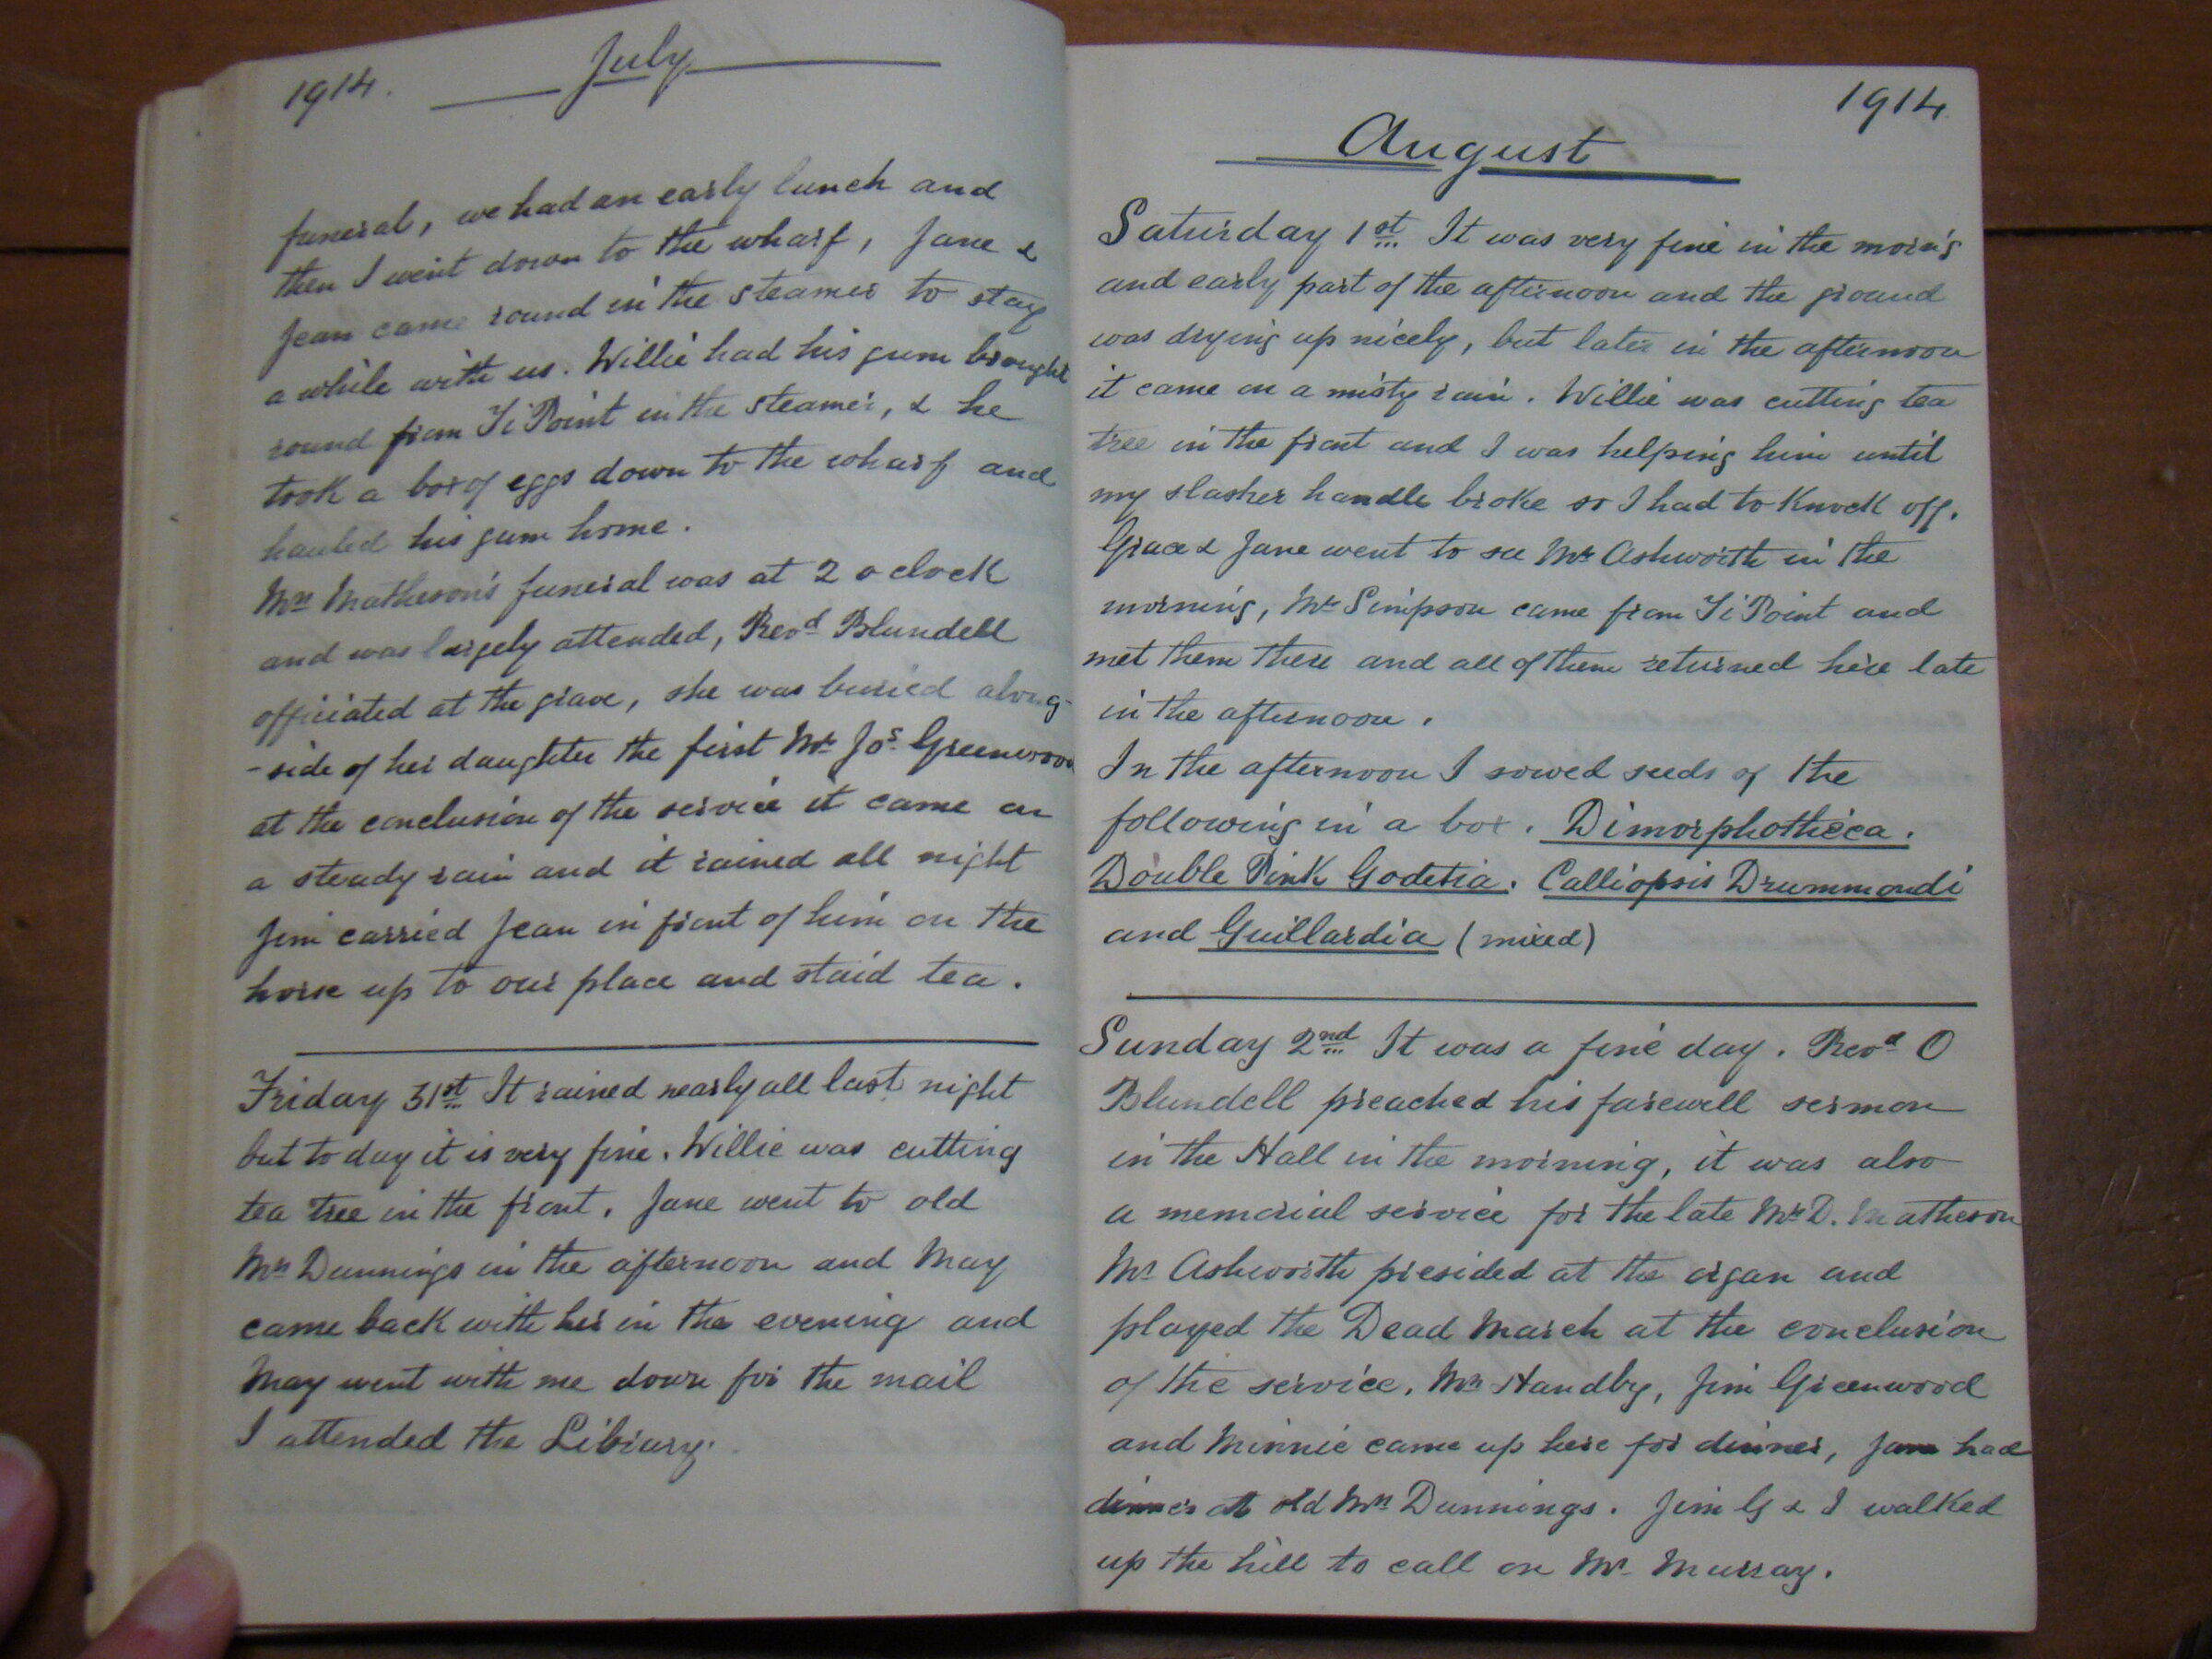 1914.
July
funeral, we had an early lunch and
then I went down to the wharf, Jane &
Jean came round in the steamer to stay
a while with us. Willie had his gum brought
round from Ti Point in the steamer, & he
took a box of eggs down to the wharf and
hauled his gum home.
Mrs Matheson's funeral was at 2 o clock
and was largely attended, Revd Blundell
officiated at the grave, she was buried along-
-side of her daughter the first Mrs Jos Greenwood
at the conclusion of the service it came on
a steady rain and it rained all night
Jim carried Jean in front of him on the
horse up to our place and staid tea.
Friday 31st It rained nearly all last night
but to day it is very fine. Willie was cutting
tea tree in the front. Jane went to old
Mrs Dunnings in the afternoon and May
came back with her in the evening and
May went with me down for the mail
I attended the Library.
1914
August
Saturday 1st It was very fine in the morn'g
and early part of the afternoon and the ground
was drying up nicely, but later in the afternoon
it came on a misty rain. Willie was cutting tea
tree in the front and I was helping him until
my slasher handle broke so I had to knock off.
Grace & Jane went to see Mrs Ashworth in the
morning, Mr Simpson came from Ti Point and
met them there and all of them returned here late
in the afternoon.
In the afternoon I sowed seeds of the
following in a box. Dimorphotheca.
Double Pink Godetia. Calliopsis Drummondi
and Guillardia (mixed)
Sunday 2nd It was a fine day. Revd O
Blundell preached his farewell sermon
in the Hall in the morning, it was also
a memorial service for the late Mrs D. Matheson
Mr Ashworth presided at the organ and
played the Dead March at the conclusion
of the service. Mrs Handby, Jim Greenwood
and Minnie came up here for dinner, Jane had
dinner at old Mrs Dunnings. Jim G & I walked
up the hill to call on Mr Murray.